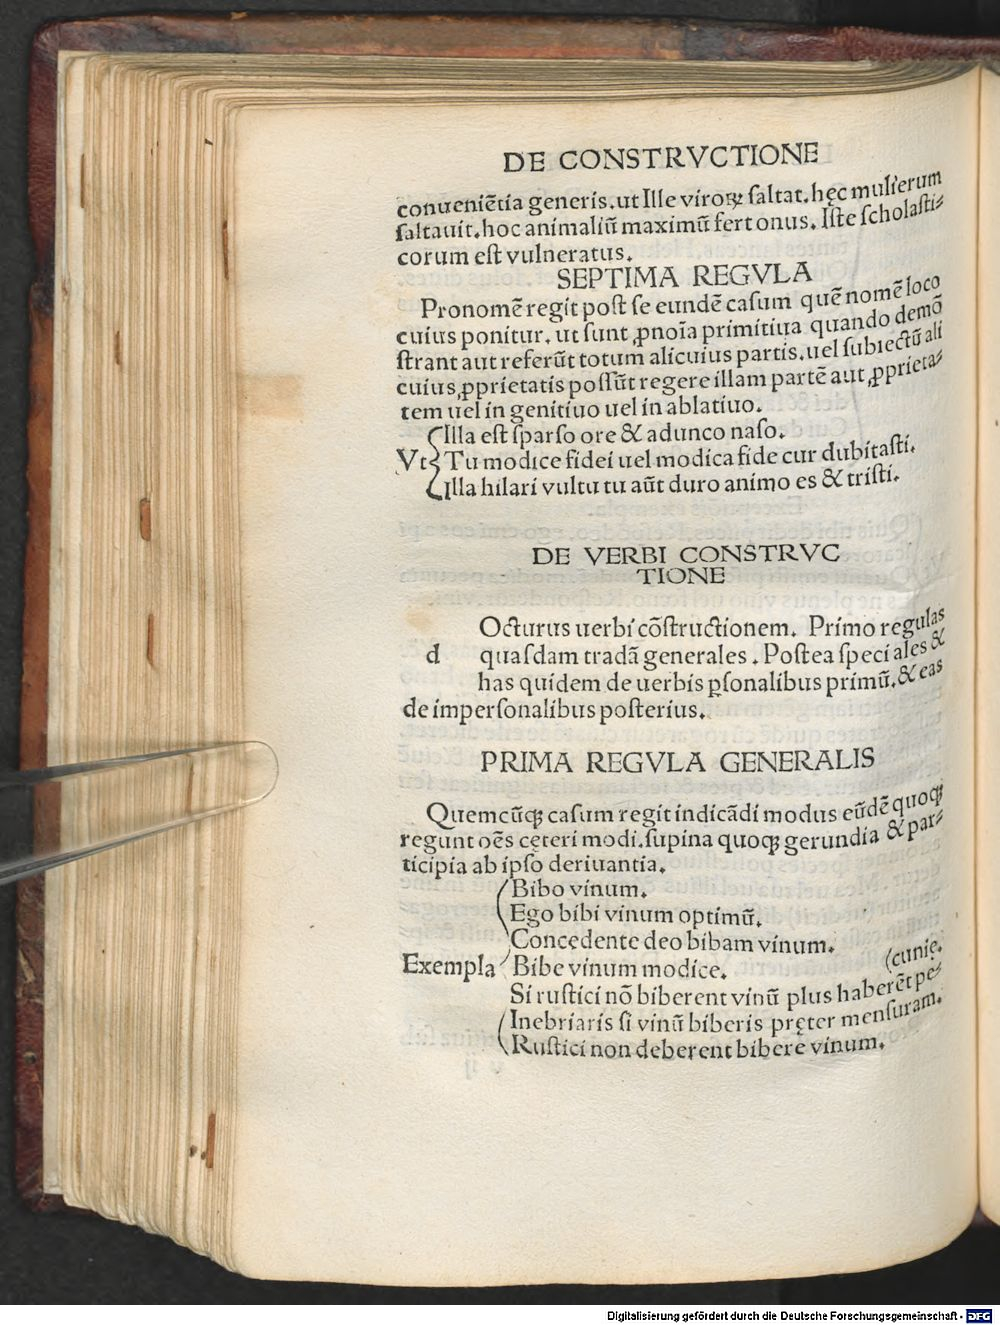 DE CONSTRVCTIONE
conueniētia generis. ut Ille viroꝝ ſaltat. hęc mulierum
ſaltauit. hoc animaliū maximū fert onus. Iſte ſcholaſti⸗
corum eſt vulneratus.
SEPTIMA REGVLA
Pronomē regit poſt ſe eundē caſum quē nomē loco
cuius ponitur. ut ſunt ꝓnoīa primitiua quando demō
ſtrant aut referūt totum alicuius partis. uel ſubiectū ali
cuius ꝓprietatis poſſūt regere illam partē aut ꝓprieta⸗
tem uel in genitiuo uel in ablatiuo.
Illa eſt ſparſo ore & adunco naſo.
Vt Tu modice fidei uel modica fide cur dubitaſti.
Illa hilari vultu tu aūt duro animo es & triſti.
DE VERBI CONSTRVC
TIONE
Octurus uerbi cōſtructionem. Primo regulas
d quaſdam tradā generales. Poſtea ſpeciales &
has quidem de uerbis ꝑſonalibus primū. & eas
de imperſonalibus poſterius.
PRIMA REGVLA GENERALIS
Quemcūqꝫ caſum regit indicādi modus eūdē quoqꝫ
regunt oēs cęteri modi. ſupina quoqꝫ gerundia & par⸗
ticipia ab ipſo deriuantia.
Bibo vinum.
Ego bibi vinum optimū.
Concedente deo bibam vinum.
Exempla Bibe vinum modice. (cunię.
Si ruſtici nō biberent vinū plus haberēt pe⸗
Inebriaris ſi vinū biberis pręter menſuram.
Ruſtici non deberent bibere vinum.
Digitalisierung gefördert durch die Deutsche Forschungsgemeinschaft - DFG